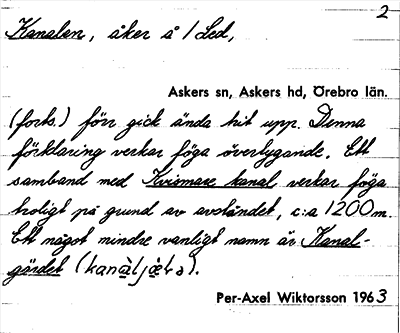 2
Kanalen, åker å 1 Led,
Askers sn, Askers hd, Örebro län.
(forts.) förr gick ända hit upp. Denna
förklaring verkar föga övertygande. Ett
samband med Kvismare kanal verkar föga
troligt på grund av avståndet, c:a 1200 m.
Ett något mindre vanligt namn är Kanal-
gärdet
Per-Axel Wiktorsson 1963